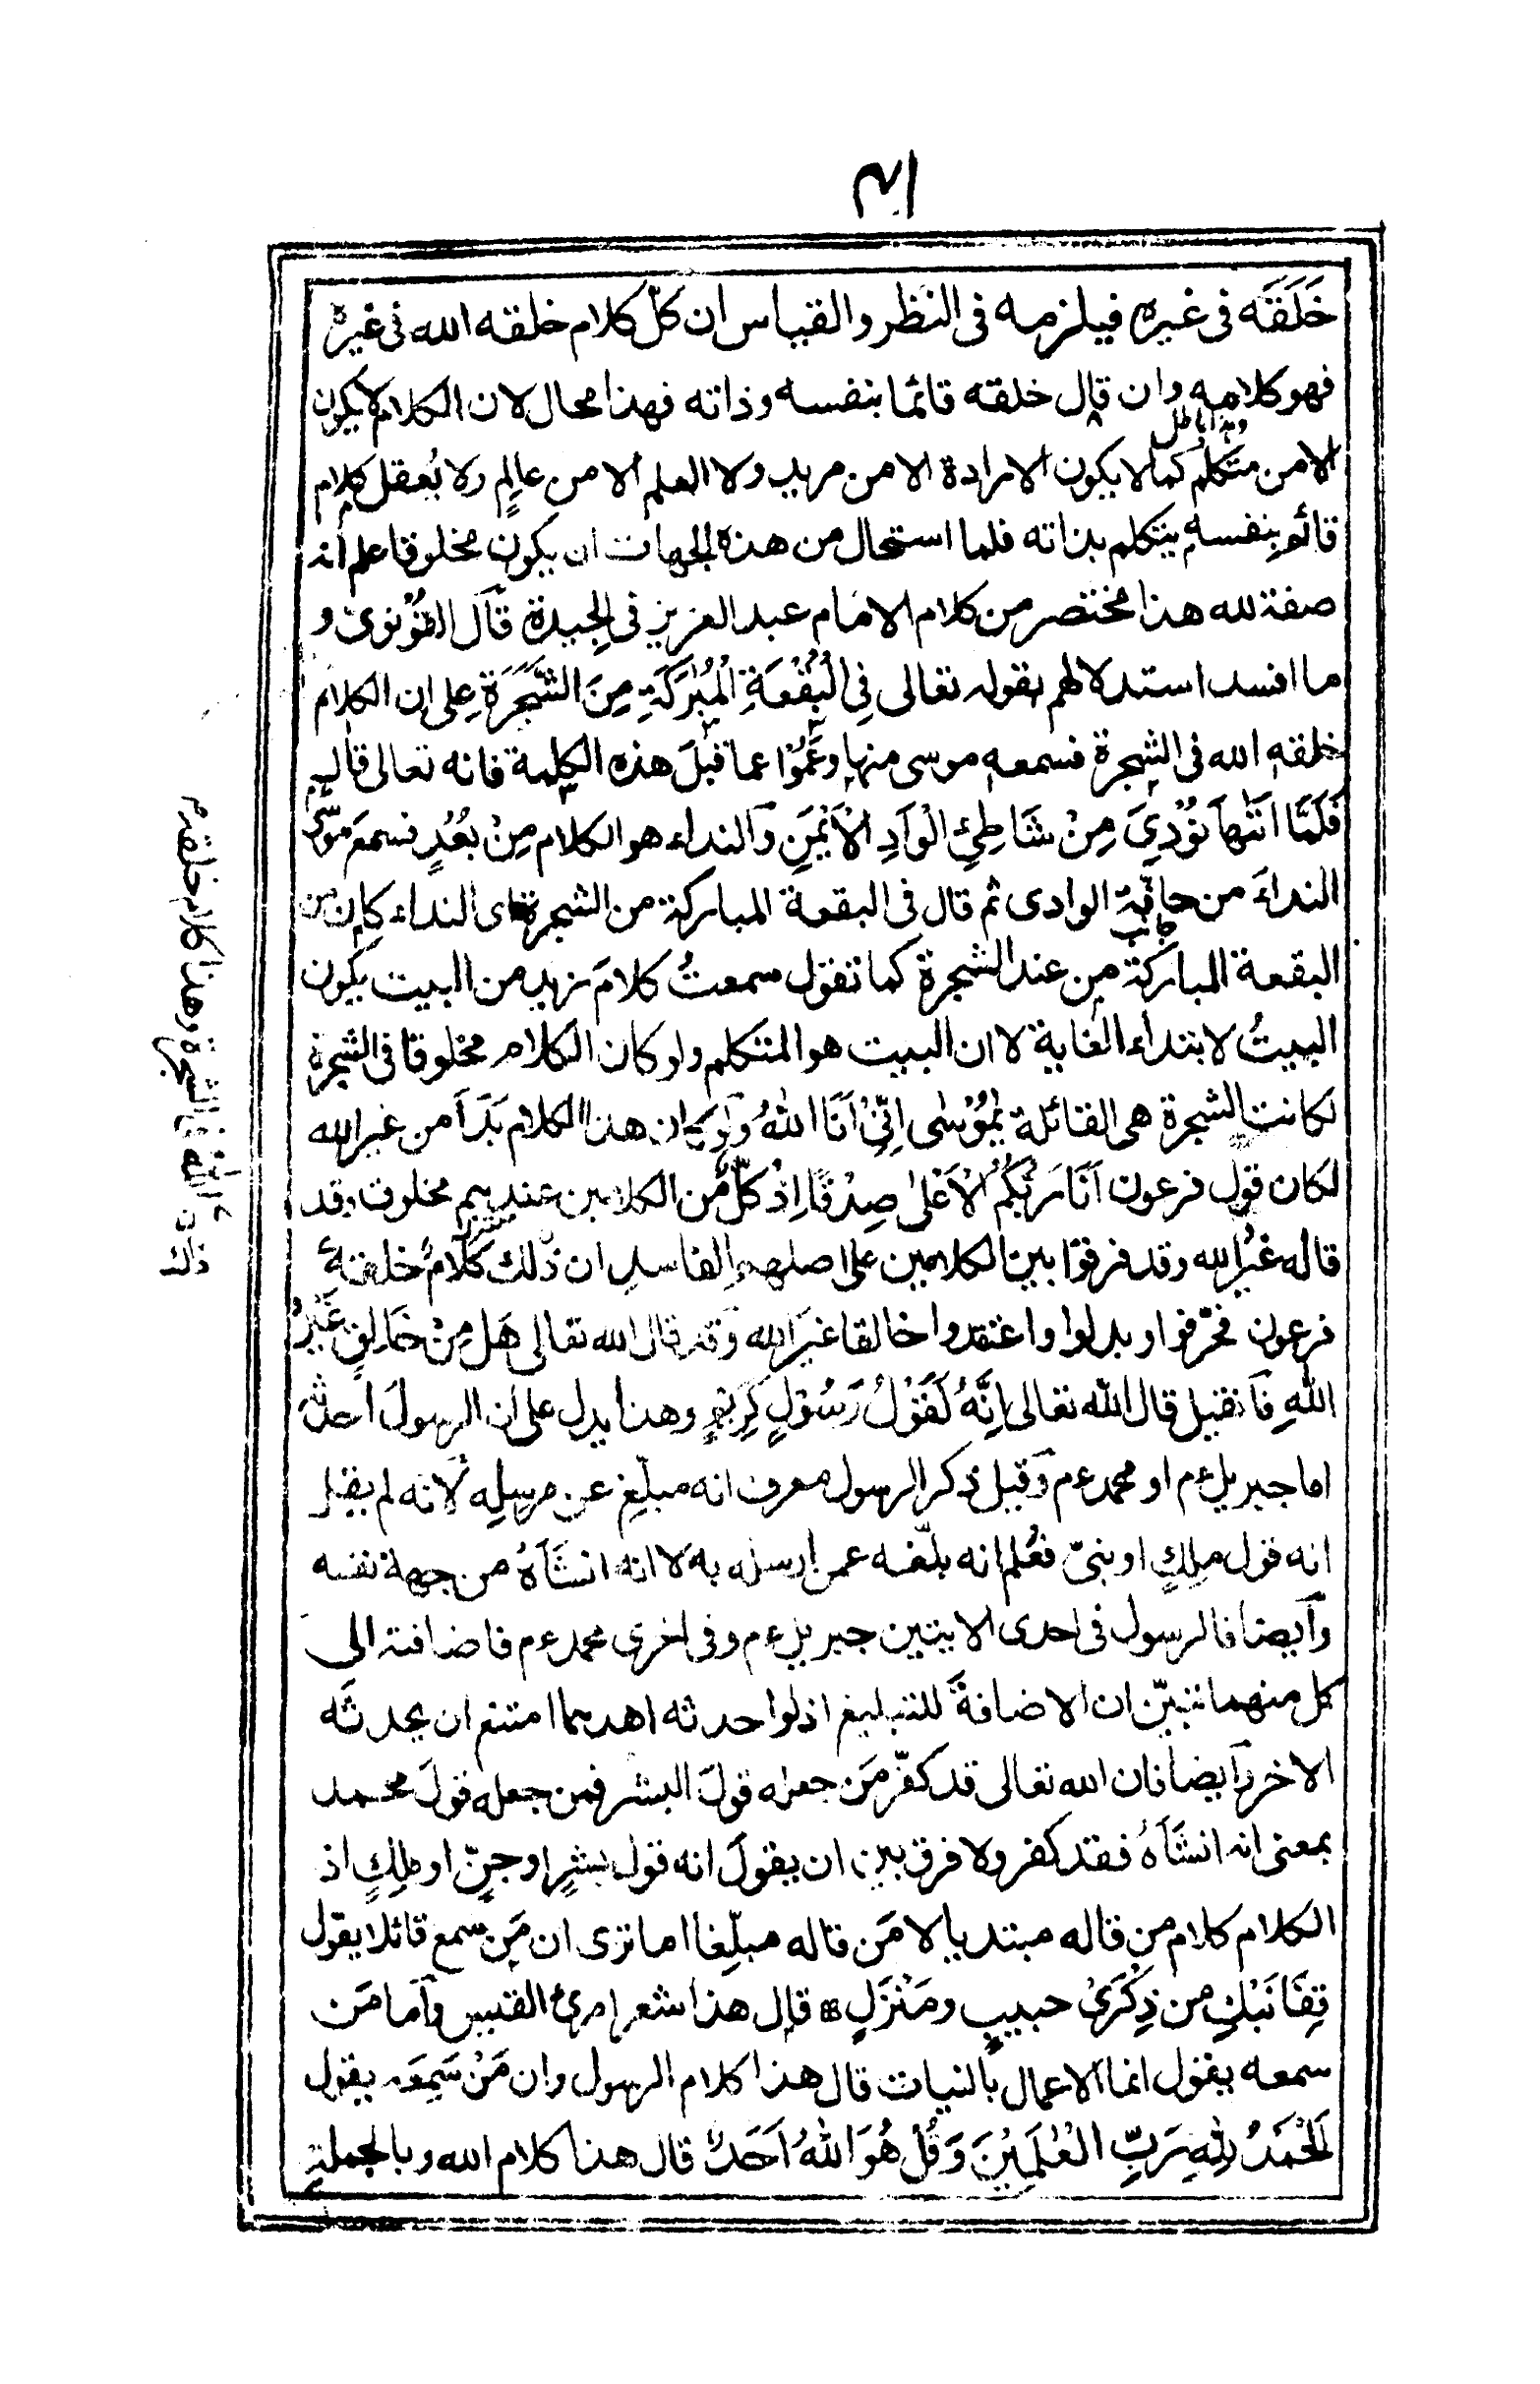 ٤١
خَلَقَه فى غيره فيلزمه فى النظر والقياس ان كلّ كلام خلقه الله فى غيره
فهو كلامه وان قال خلقه قائما بنفسه وذاته فهذا محال لان الكلام لا يكون
وهذا باطل
الا من متكلم كما لا يكون الارادة الا من مريد ولا العلم الا من عالِمٍ ولا يُعقل كلام
قائم بنفسه يتكلم بذاته فلما استحال من هذه الجهات ان يكون مخلوقا علم انه
صفة لله هذا مختصر من كلام الامام عبد العزيز فى الحِيدة قال القُوْنوى و
ما افسد استدلالهم بقوله تعالى فِى الْبُقْعَةِ الْمُبٰرَكَةِ مِنَ الشَّجَرَةِ على ان الكلام
خلقه الله فى الشجرة فسمعه موسى منها وعَمُوْا عما قبلَ هذه الكلمة فانه تعالى قال
فَلَمَّا اَتٰهَا نُوْدِىَ مِنْ شَاطِئِ الْوَادِ الْاَيْمَنِ والنداء هو الكلام مِنْ بُعْدٍ فسمعَ موسٰى
النداءَ من حافّة الوادى ثم قال فى البقعة المباركة من الشجرة اى النداء كان من
جانب
البقعة المباركة من عند الشجرة كما تقول سمعتُ كلامَ زيد من البيت يكون
البيتُ لابتداء الغاية لا ان البيت هو المتكلم ولو كان الكلام مخلوقا فى الشجرة
لكانت الشجرة هى القائلة يٰمُوْسٰى اِنِّىْ اَنَا اللهُ ولو كان هذا الكلام بَدَأَ من غير الله
لكان قول فرعون اَنَا رَبُّكُمُ الْاَعْلٰى صِدْقًا اِذْ كلٌّ من الكلامين عندهم مخلوق قد
قاله غيرُ الله وقد فرقوا بين الكلامين على اصلهم الفاسد ان ذلك كلامٌ خلقهُ
فرعون فحرّفوا وبدلوا واعتقدوا خالقا غيرَ الله وقد قال الله تعالى هَل مِنْ خَالِقٍ غَيْرُ
اللهِ فان قيل قال الله تعالى اِنَّهُ لَقَوْلُ رَسُوْلٍ كَرِيْمٍ وهذا يدل على ان الرسولَ احدثه
اما جبريل عم او محمد عم وقيل ذكر الرسول معرف انه مبلّغ عن مرسِلِه لانه لم يقل
انه قول ملِكٍ او نبىّ فعُلم انه بلّغه عمن ارسله به لا انه انشَأَهُ من جهة نفسه
وايضا فالرسول فى احدى الايتين جبريل عم وفى اخرى محمد عم فاضافته الى
كل منهما تبيّن ان الاضافةَ للتبليغ اذ لو احدثه احدهما امتنع ان يحدثَه
الاخر وايضا فان الله تعالى قد كفّر مَن جعله قولَ البشر فمن جعله قولَ محمد
بمعنى انه انشَأَهُ فقد كفر ولا فرق بين ان يقولَ انه قول بشرٍ او جنّ او ملكٍ اذ
الكلام كلام من قاله مبتديا لا مَن قاله مبلّغا اما ترى ان مَن سمع قائلا يقول
قِفَا نَبْكِ من ذِكْرَىٰ حبيبٍ ومَنْزَلٍ قال هذا شعر امرئ القيس واما مَن
سمعه يقول انما الاعمال بالنيات قال هذا كلام الرسول وان مَنْ سَمِعَه يقول
اَلْحَمْدُ لِلّٰهِ رَبِّ الْعٰلَمِيْنَ وَقُلْ هُوَ اللهُ اَحَدٌ قال هذا كلام الله وبالجملة
الله فى الشجرة وهذا كلام خلقه